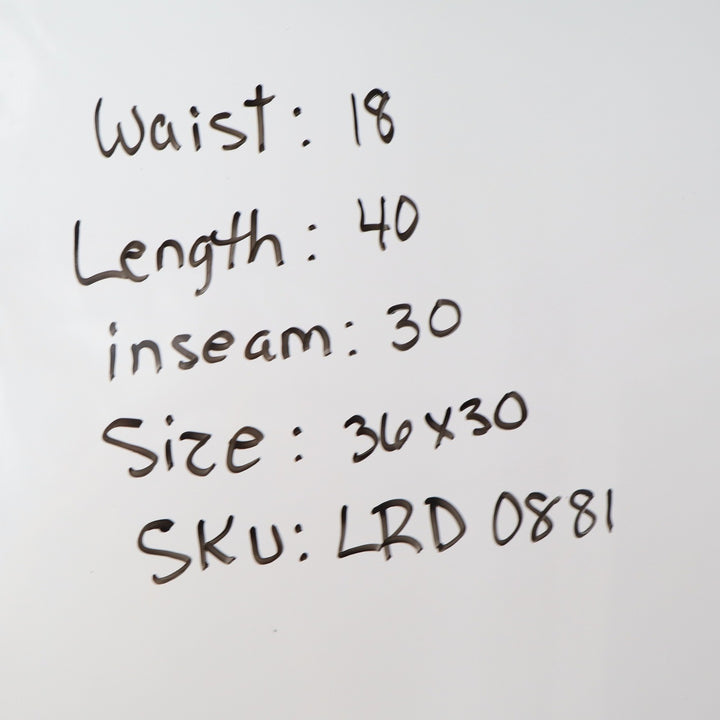 Waist: 18
Length: 40
inseam: 30
Size: 36x30
SKU: LRD 0881